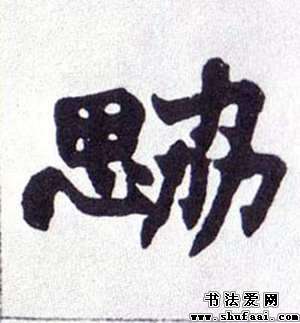 勰
书法爱网
www.shufaai.com